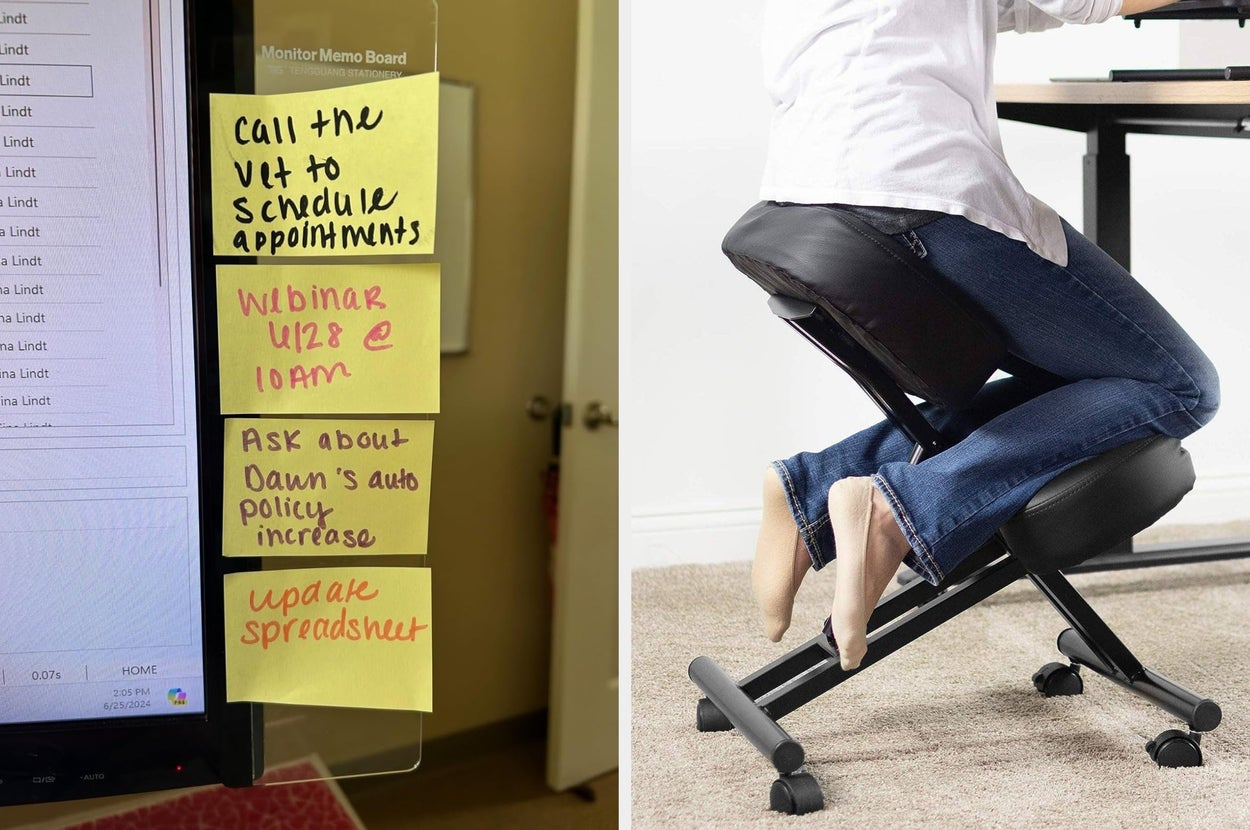 Lindt
Lindt
Lindt
Lindt
Lindt
Lindt
a Lindt
a Lindt
a Lindt
na Lindt
na Lindt
na Lindt
ina Lindt
ina Lindt
0.07s
HOME
2:05 PM
6/25/2024
-AUTO
Monitor Memo Board
TENGGUANG STATIONERY
Call the
vet to
schedule
appointments
Webinar
6/28 @
10AM
Ask about
Dawn's auto
policy
increase
update
spreadsheet